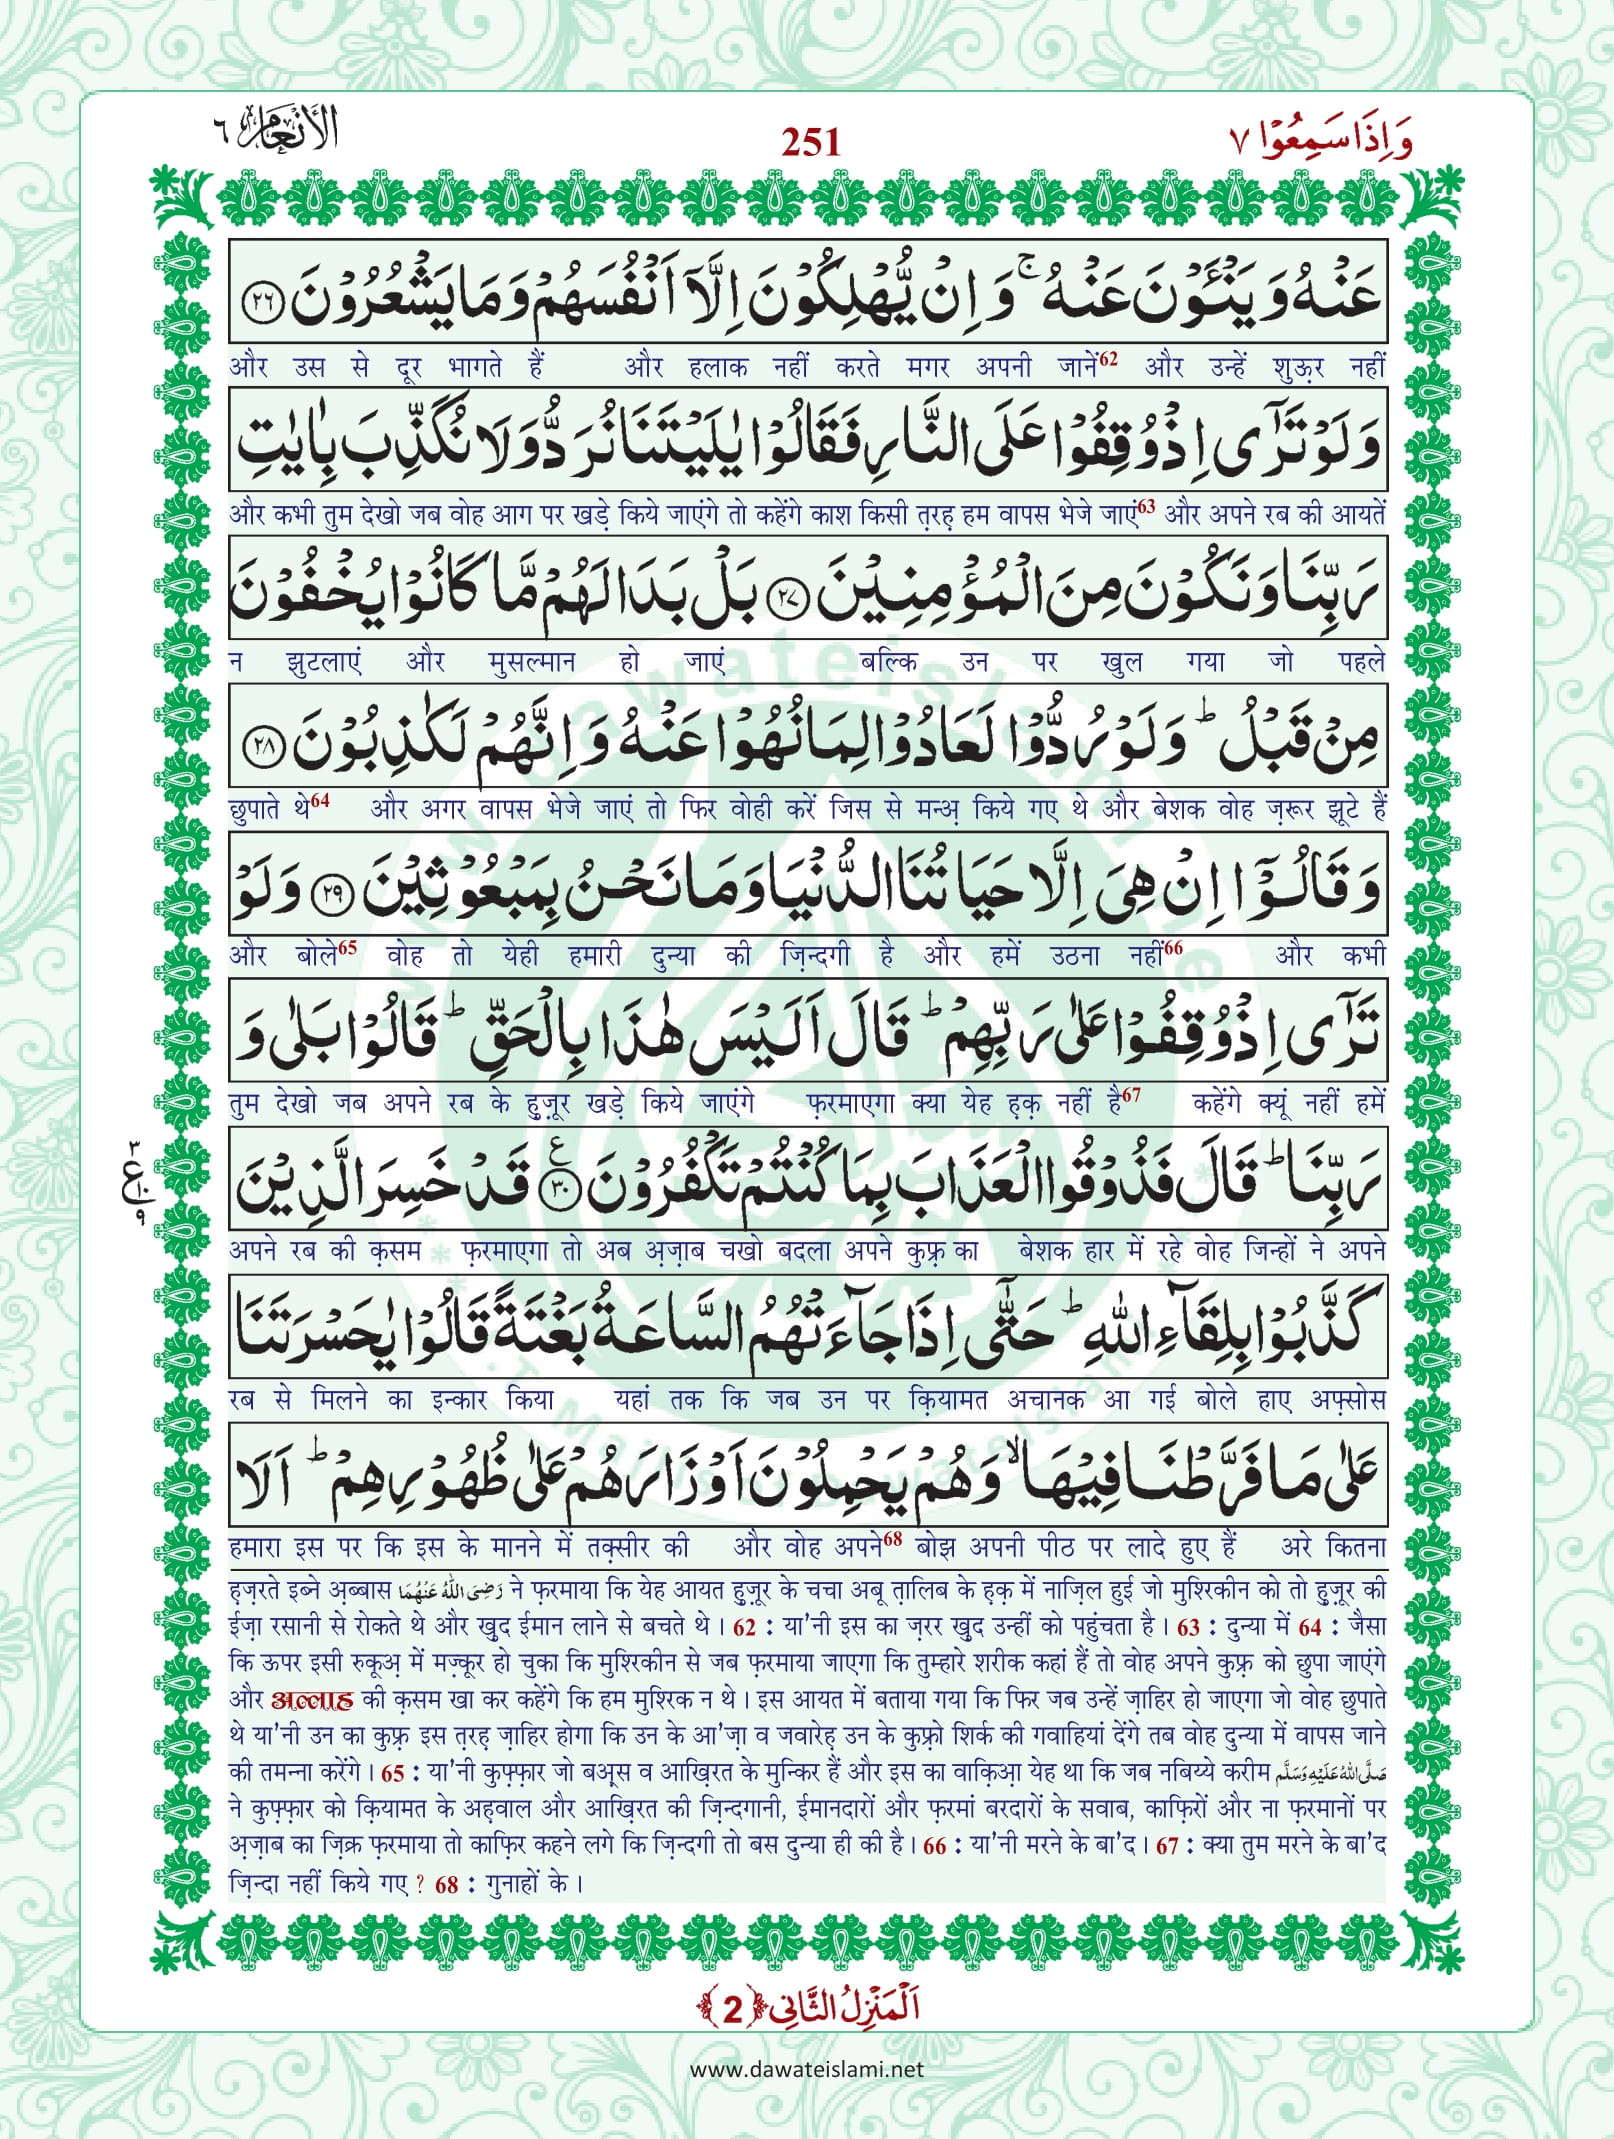 وَاِذَا سَمِعُوۡا ٧ 251 الْاَنْعَام ٦
عَنْهُ وَيَنْـَٔوْنَ عَنْهُ ۚ وَ اِنْ یُّهْلِكُوْنَ اِلَّاۤ اَنْفُسَهُمْ وَ مَا یَشْعُرُوْنَ ﴿۲۶﴾
और उस से दूर भागते हैं और हलाक नहीं करते मगर अपनी जानें62 और उन्हें शुऊ़र नहीं
وَ لَوْ تَرٰۤى اِذْ وُقِفُوْا عَلَى النَّارِ فَقَالُوْا یٰلَیْتَنَا نُرَدُّ وَ لَا نُكَذِّبَ بِاٰیٰتِ
और कभी तुम देखो जब वोह आग पर खड़े किये जाएंगे तो कहेंगे काश किसी त़रह़ हम वापस भेजे जाएं63 और अपने रब की आयतें
رَبِّنَا وَ نَكُوْنَ مِنَ الْمُؤْمِنِیْنَ ﴿۲۷﴾ بَلْ بَدَا لَهُمْ مَّا كَانُوْا یُخْفُوْنَ
न झुटलाएं और मुसल्मान हो जाएं बल्कि उन पर खुल गया जो पहले
مِنْ قَبْلُ ؕ وَ لَوْ رُدُّوْا لَعَادُوْا لِمَا نُهُوْا عَنْهُ وَ اِنَّهُمْ لَكٰذِبُوْنَ ﴿۲۸﴾
छुपाते थे64 और अगर वापस भेजे जाएं तो फिर वोही करें जिस से मन्अ़ किये गए थे और बेशक वोह ज़रूर झूटे हैं
وَ قَالُوْۤا اِنْ هِیَ اِلَّا حَیَاتُنَا الدُّنْیَا وَ مَا نَحْنُ بِمَبْعُوْثِیْنَ ﴿۲۹﴾ وَ لَوْ
और बोले65 वोह तो येही हमारी दुन्या की ज़िन्दगी है और हमें उठना नहीं66 और कभी
تَرٰۤى اِذْ وُقِفُوْا عَلٰى رَبِّهِمْ ؕ قَالَ اَلَیْسَ هٰذَا بِالْحَقِّ ؕ قَالُوْا بَلٰى وَ
तुम देखो जब अपने रब के हुज़ूर खड़े किये जाएंगे फ़रमाएगा क्या येह ह़क़ नहीं है67 कहेंगे क्यूं नहीं हमें
رَبِّنَا ؕ قَالَ فَذُوْقُوا الْعَذَابَ بِمَا كُنْتُمْ تَكْفُرُوْنَ ﴿۳۰﴾ ع قَدْ خَسِرَ الَّذِیْنَ
٣ ع ١٠ ٩
अपने रब की क़सम फ़रमाएगा तो अब अ़ज़ाब चखो बदला अपने कुफ़्र का बेशक हार में रहे वोह जिन्हों ने अपने
كَذَّبُوْا بِلِقَآءِ اللّٰهِ ؕ حَتّٰۤى اِذَا جَآءَتْهُمُ السَّاعَةُ بَغْتَةً قَالُوْا یٰحَسْرَتَنَا
रब से मिलने का इन्कार किया यहां तक कि जब उन पर क़ियामत अचानक आ गई बोले हाए अफ़्सोस
عَلٰى مَا فَرَّطْنَا فِیْهَا ۙ وَ هُمْ یَحْمِلُوْنَ اَوْزَارَهُمْ عَلٰى ظُهُوْرِهِمْ ؕ اَلَا
हमारा इस पर कि इस के मानने में तक़्सीर की और वोह अपने68 बोझ अपनी पीठ पर लादे हुए हैं अरे कितना
ह़ज़रते इब्ने अ़ब्बास رَضِیَ اللّٰهُ عَنْهُمَا ने फ़रमाया कि येह आयत हु़ज़ूर के चचा अबू त़ालिब के ह़क़ में नाज़िल हुई जो मुश्रिकीन को तो हु़ज़ूर की
ईज़ा रसानी से रोकते थे और ख़ुद ईमान लाने से बचते थे । 62 : या'नी इस का ज़रर ख़ुद उन्हीं को पहुंचता है । 63 : दुन्या में 64 : जैसा
कि ऊपर इसी रुकूअ़ में मज़्कूर हो चुका कि मुश्रिकीन से जब फ़रमाया जाएगा कि तुम्हारे शरीक कहां हैं तो वोह अपने कुफ़्र को छुपा जाएंगे
और अल्लाह की क़सम खा कर कहेंगे कि हम मुश्रिक न थे । इस आयत में बताया गया कि फिर जब उन्हें ज़ाहिर हो जाएगा जो वोह छुपाते
थे या'नी उन का कुफ़्र इस त़रह़ ज़ाहिर होगा कि उन के आ'ज़ा व जवारेह़ उन के कुफ़्रो शिर्क की गवाहियां देंगे तब वोह दुन्या में वापस जाने
की तमन्ना करेंगे । 65 : या'नी कुफ़्फ़ार जो बअ़्स व आख़िरत के मुन्किर हैं और इस का वाक़िआ़ येह था कि जब नबिय्ये करीम صَلَّى اللّٰهُ عَلَیْهِ وَسَلَّم
ने कुफ़्फ़ार को क़ियामत के अह़वाल और आख़िरत की ज़िन्दगानी, ईमानदारों और फ़रमां बरदारों के सवाब, काफ़िरों और ना फ़रमानों पर
अ़ज़ाब का ज़िक्र फ़रमाया तो काफ़िर कहने लगे कि ज़िन्दगी तो बस दुन्या ही की है । 66 : या'नी मरने के बा'द । 67 : क्या तुम मरने के बा'द
ज़िन्दा नहीं किये गए ? 68 : गुनाहों के ।
اَلْمَنْزِلُ الثَّانِی ﴿2﴾
www.dawateislami.net